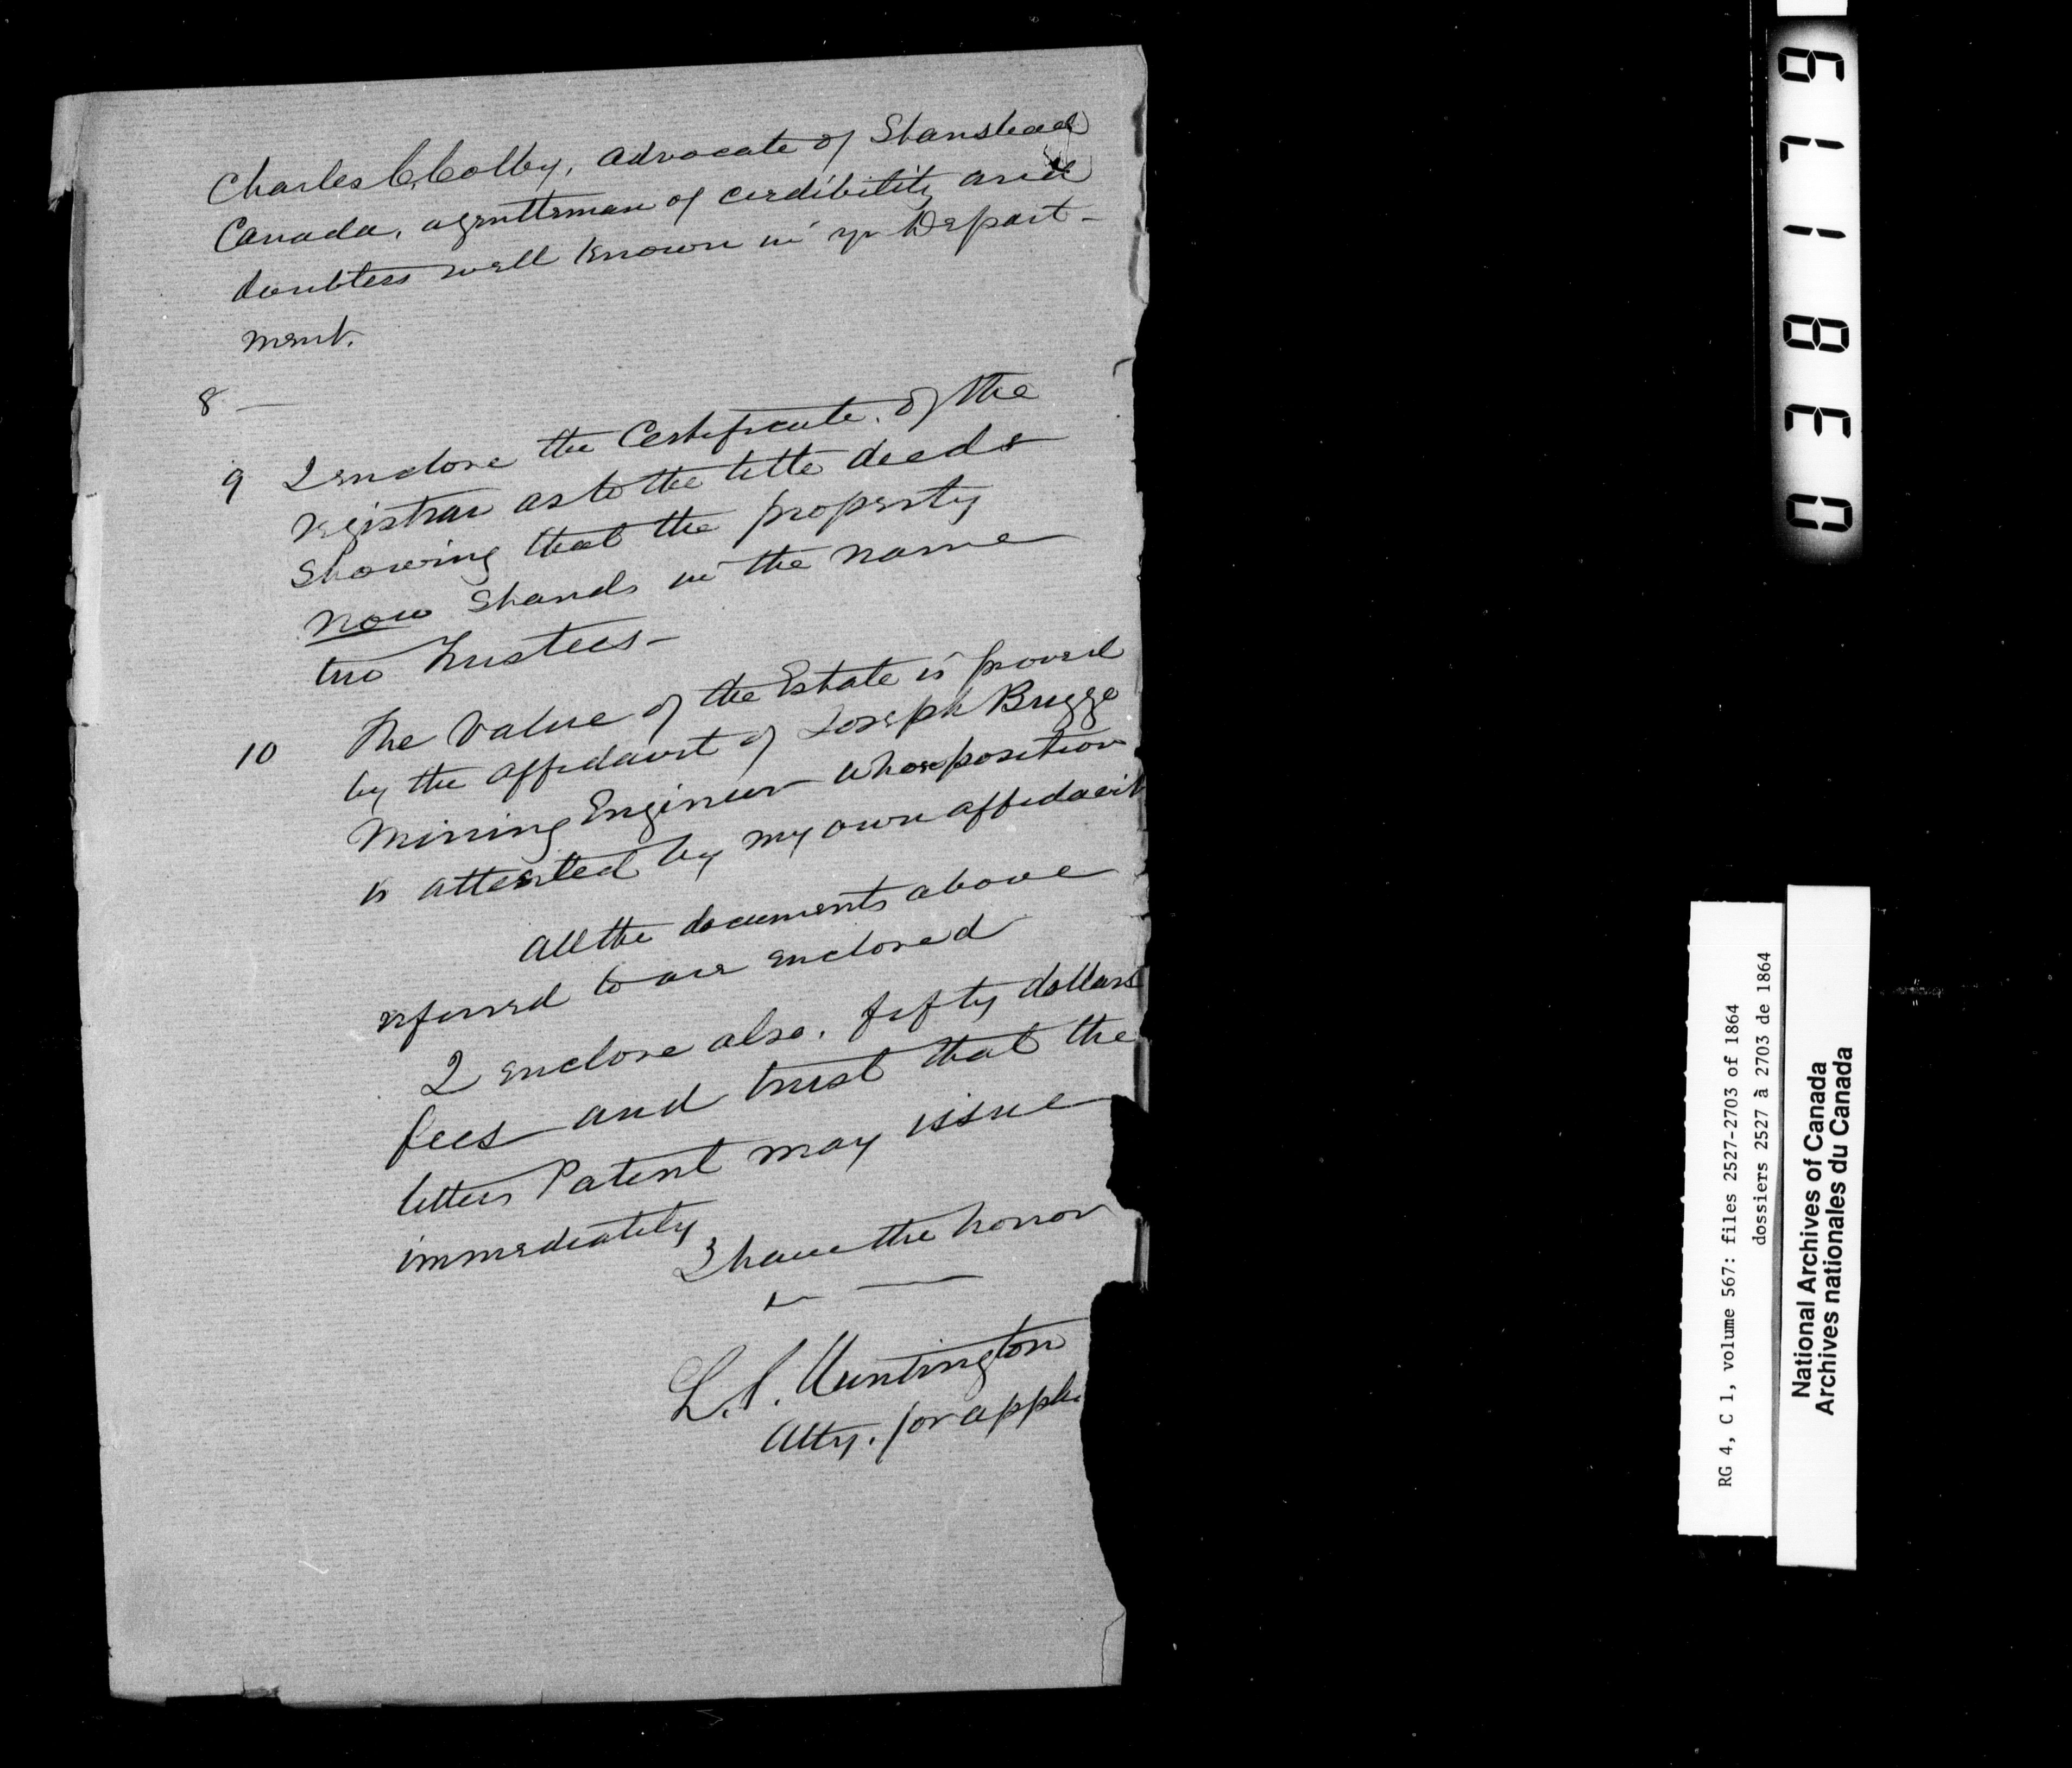 Charles C. Colby, advocate of Stanstead
Canada, a gentleman of credibility and
doubtless well known in yr Depart-
ment.
8 —
9 I enclose the Certificate of the
registrar as to the title deeds
showing that the property
now stands in the name
two Trustees —
10 The Value of the Estate is proved
by the affidavit of Joseph Bugge
Mining Engineer whose position
is attested by my own affidavit
All the documents above
referred to are enclosed
I enclose also. fifty dollars
fees and trust that the
letters Patent may issue
immediately
I have the honor
L. S. Huntington
Atty. for appli
0381719
RG 4, C 1, volume 567: files 2527-2703 of 1864
dossiers 2527 à 2703 de 1864
National Archives of Canada
Archives nationales du Canada